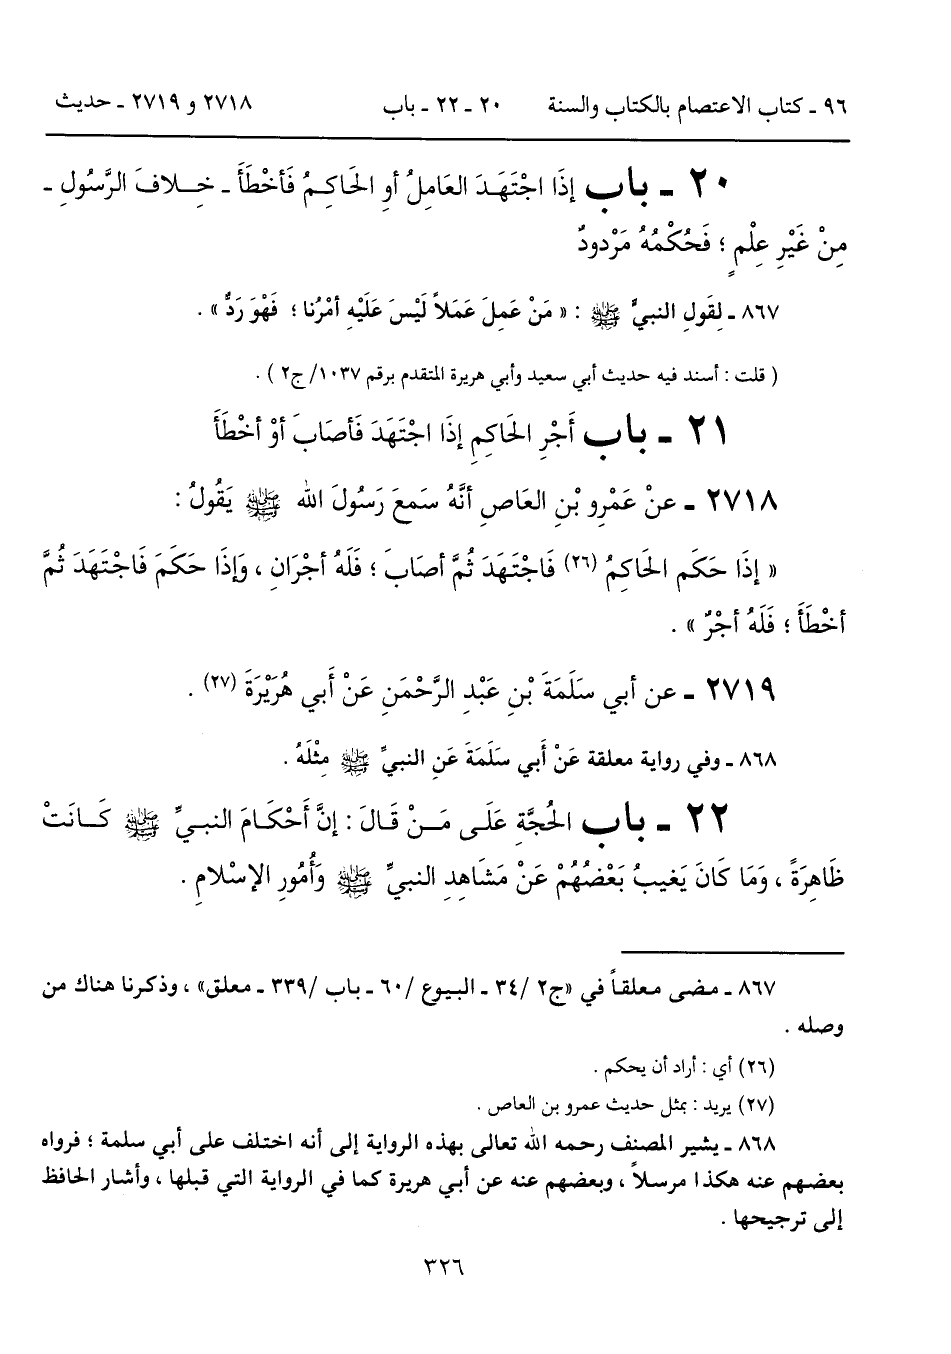 ٩٦ ـ كتاب الاعتصام بالكتاب والسنة ٢٠ ـ ٢٢ ـ باب ٢٧١٨ و ٢٧١٩ ـ حديث
٢٠ ـ باب إِذَا اجْتَهَدَ العَامِلُ أوِ الحَاكِمُ فَأخْطَأَ ـ خِلافَ الرَّسُولِ ـ
مِنْ غَيْرِ عِلْمٍ ؛ فَحُكْمُهُ مَرْدودٌ
٨٦٧ ـ لِقَولِ النبيِّ ﷺ : « مَنْ عَمِلَ عَمَلاً لَيْسَ عَلَيْهِ أمْرُنا ؛ فَهْوَ رَدٌّ » .
( قلت : أسند فيه حديث أبي سعيد وأبي هريرة المتقدم برقم ١٠٣٧/ ج٢ ) .
٢١ ـ باب أَجْرِ الحَاكِمِ إِذَا اجْتَهَدَ فَأصَابَ أوْ أخْطَأَ
٢٧١٨ ـ عنْ عَمْرِو بْنِ العَاصِ أنَّهُ سَمعَ رَسُولَ الله ﷺ يَقُولُ :
« إِذَا حَكَم الحَاكِمُ (٢٦) فَاجْتَهَدَ ثُمَّ أصَابَ ؛ فَلَهُ أجْرَانِ ، وَإِذَا حَكَمَ فَاجْتَهَدَ ثُمَّ
أخْطَأَ ؛ فَلَهُ أجْرٌ » .
٢٧١٩ ـ عن أبي سَلَمَةَ بْنِ عَبْدِ الرَّحْمَنِ عَنْ أَبي هُرَيْرَةَ (٢٧) .
٨٦٨ ـ وفي رواية معلقة عَنْ أَبي سَلَمَةَ عَنِ النبيِّ ﷺ مِثْلَهُ .
٢٢ ـ باب الحُجَّةِ عَلَى مَنْ قَالَ : إنَّ أَحْكَامَ النبيِّ ﷺ كَانَتْ
ظَاهِرَةً ، وَمَا كَانَ يَغيبُ بَعْضُهُمْ عَنْ مَشَاهِدِ النبيِّ ﷺ وَأُمُورِ الإسْلامِ .
٨٦٧ ـ مضى معلقاً في «ج٢ /٣٤ ـ البيوع /٦٠ ـ باب /٣٣٩ ـ معلق» ، وذكرنا هناك من
وصله .
(٢٦) أي : أراد أن يحكم .
(٢٧) يريد : بمثل حديث عمرو بن العاص .
٨٦٨ ـ يشير المصنف رحمه الله تعالى بهذه الرواية إلى أنه اختلف على أبي سلمة ؛ فرواه
بعضهم عنه هكذا مرسلاً ، وبعضهم عنه عن أبي هريرة كما في الرواية التي قبلها ، وأشار الحافظ
إلى ترجيحها .
٣٢٦